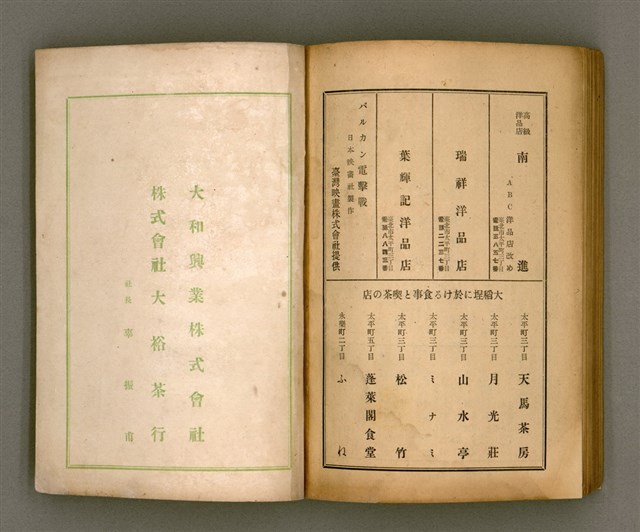 高級
洋品店
南進
ABC洋品店改め
臺北市太平町三丁目
瑞祥洋品店
臺北市太平町二丁目
電話二二三七番
葉輝記洋品店
電話八八四三番
バルカン電撃戰
日本映畫社製作
臺灣映畫株式會社提供
大稻埕に於ける食事と喫茶の店
太平町三丁目 天馬茶房
太平町三丁目 月光莊
太平町三丁目 山水亭
太平町三丁目 ミナミ
太平町三丁目 松竹
太平町五丁目 蓬萊閣食堂
永樂町二丁目 ふね
大和興業株式會社
株式會社大裕茶行
社長 李振甫